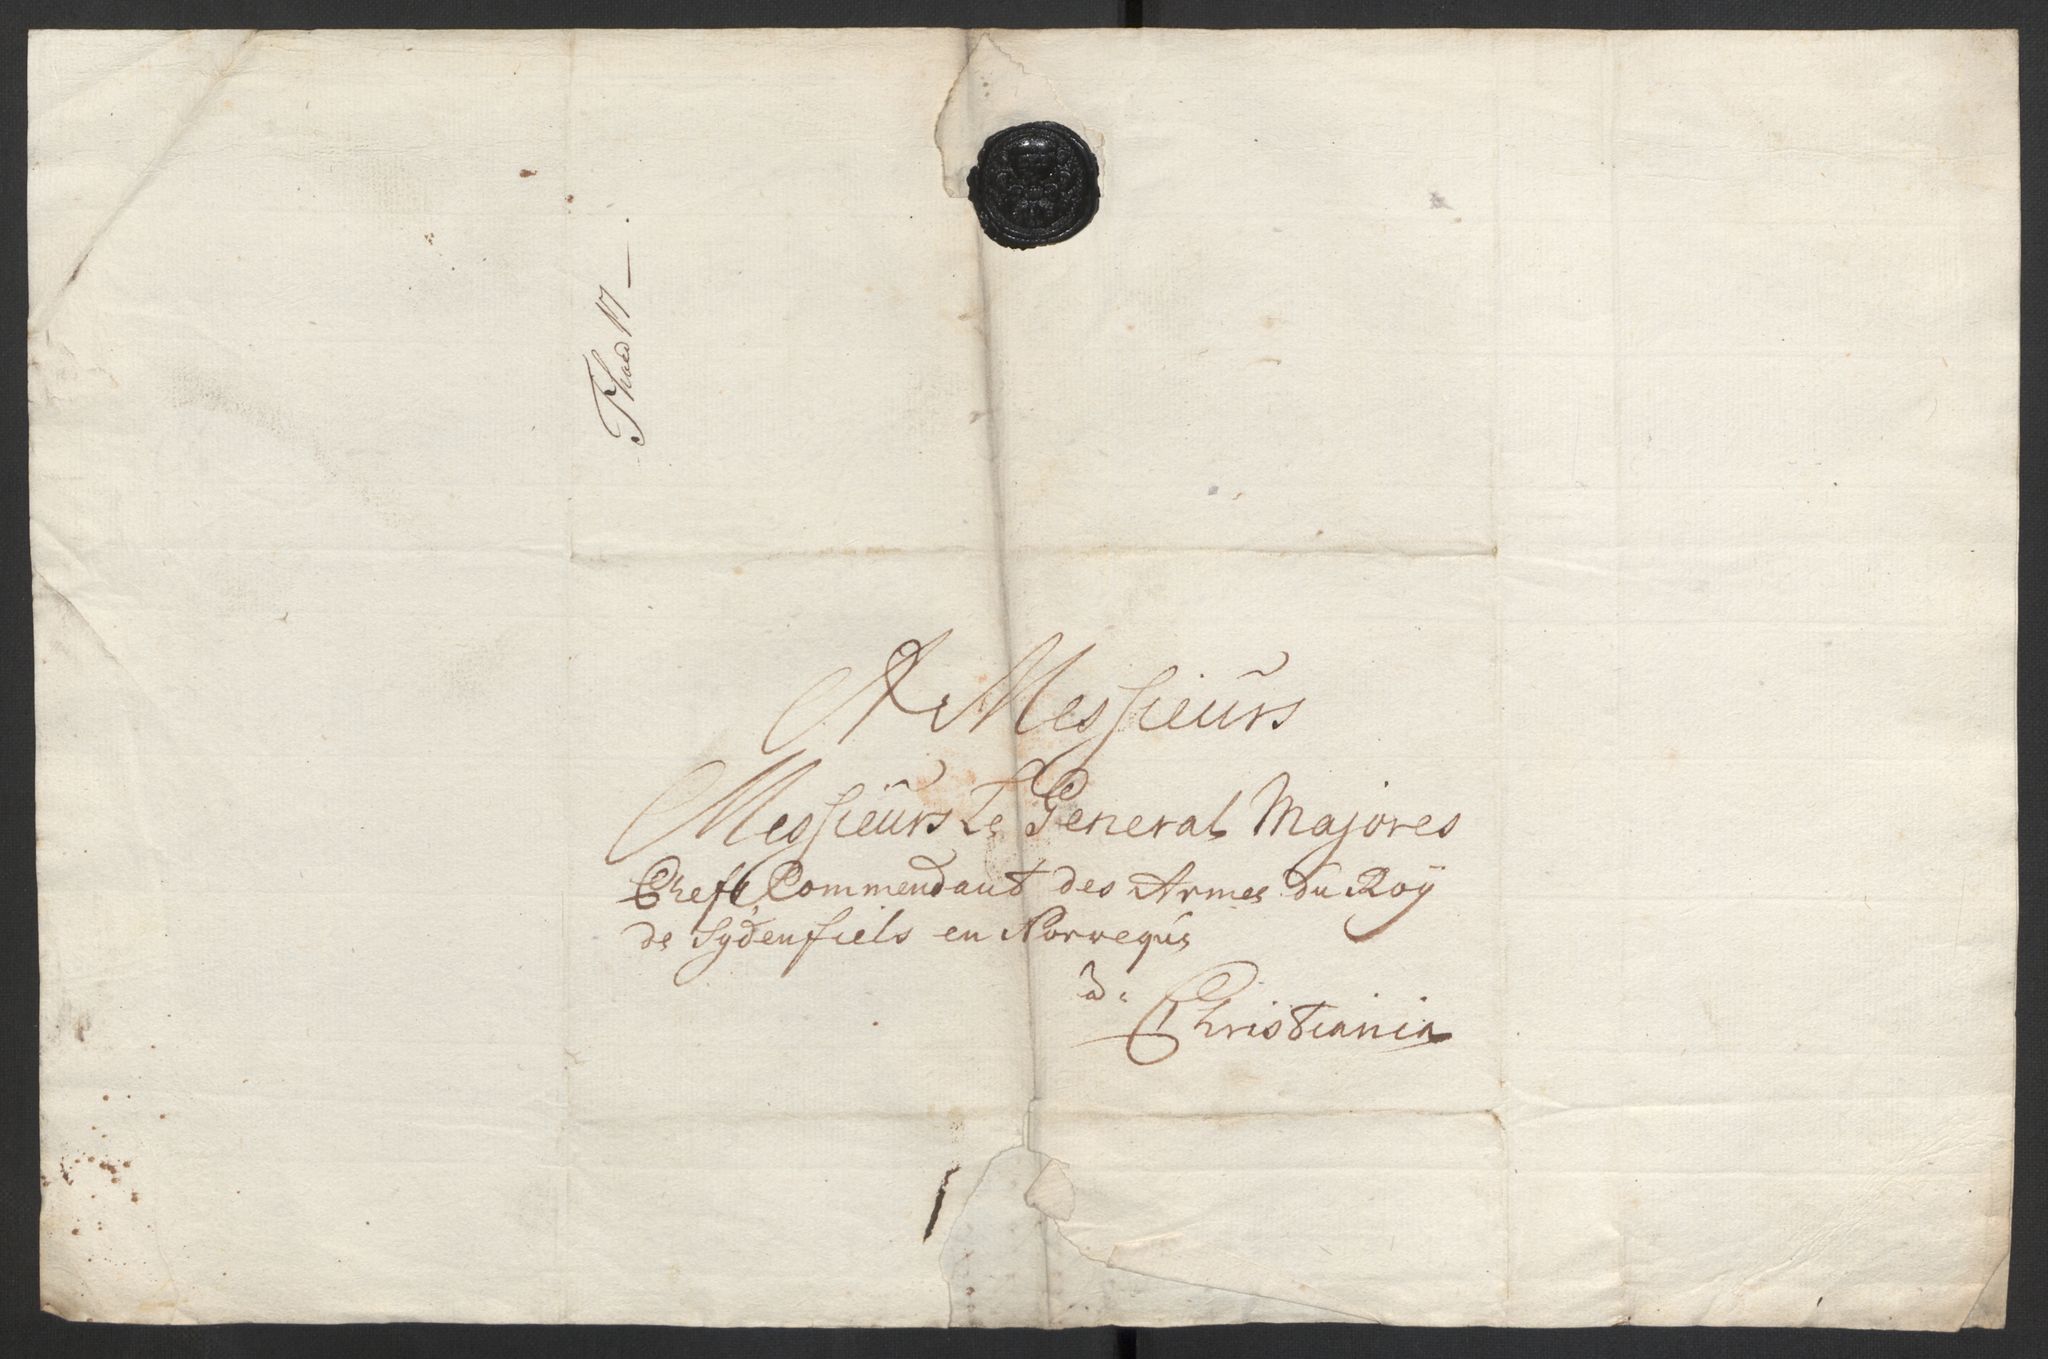 A Messieurs
Messieurs Le General Majores
Chefs Commendant des Armes du Roÿ
de Sydenfiels en Norwegus
a
Christiania